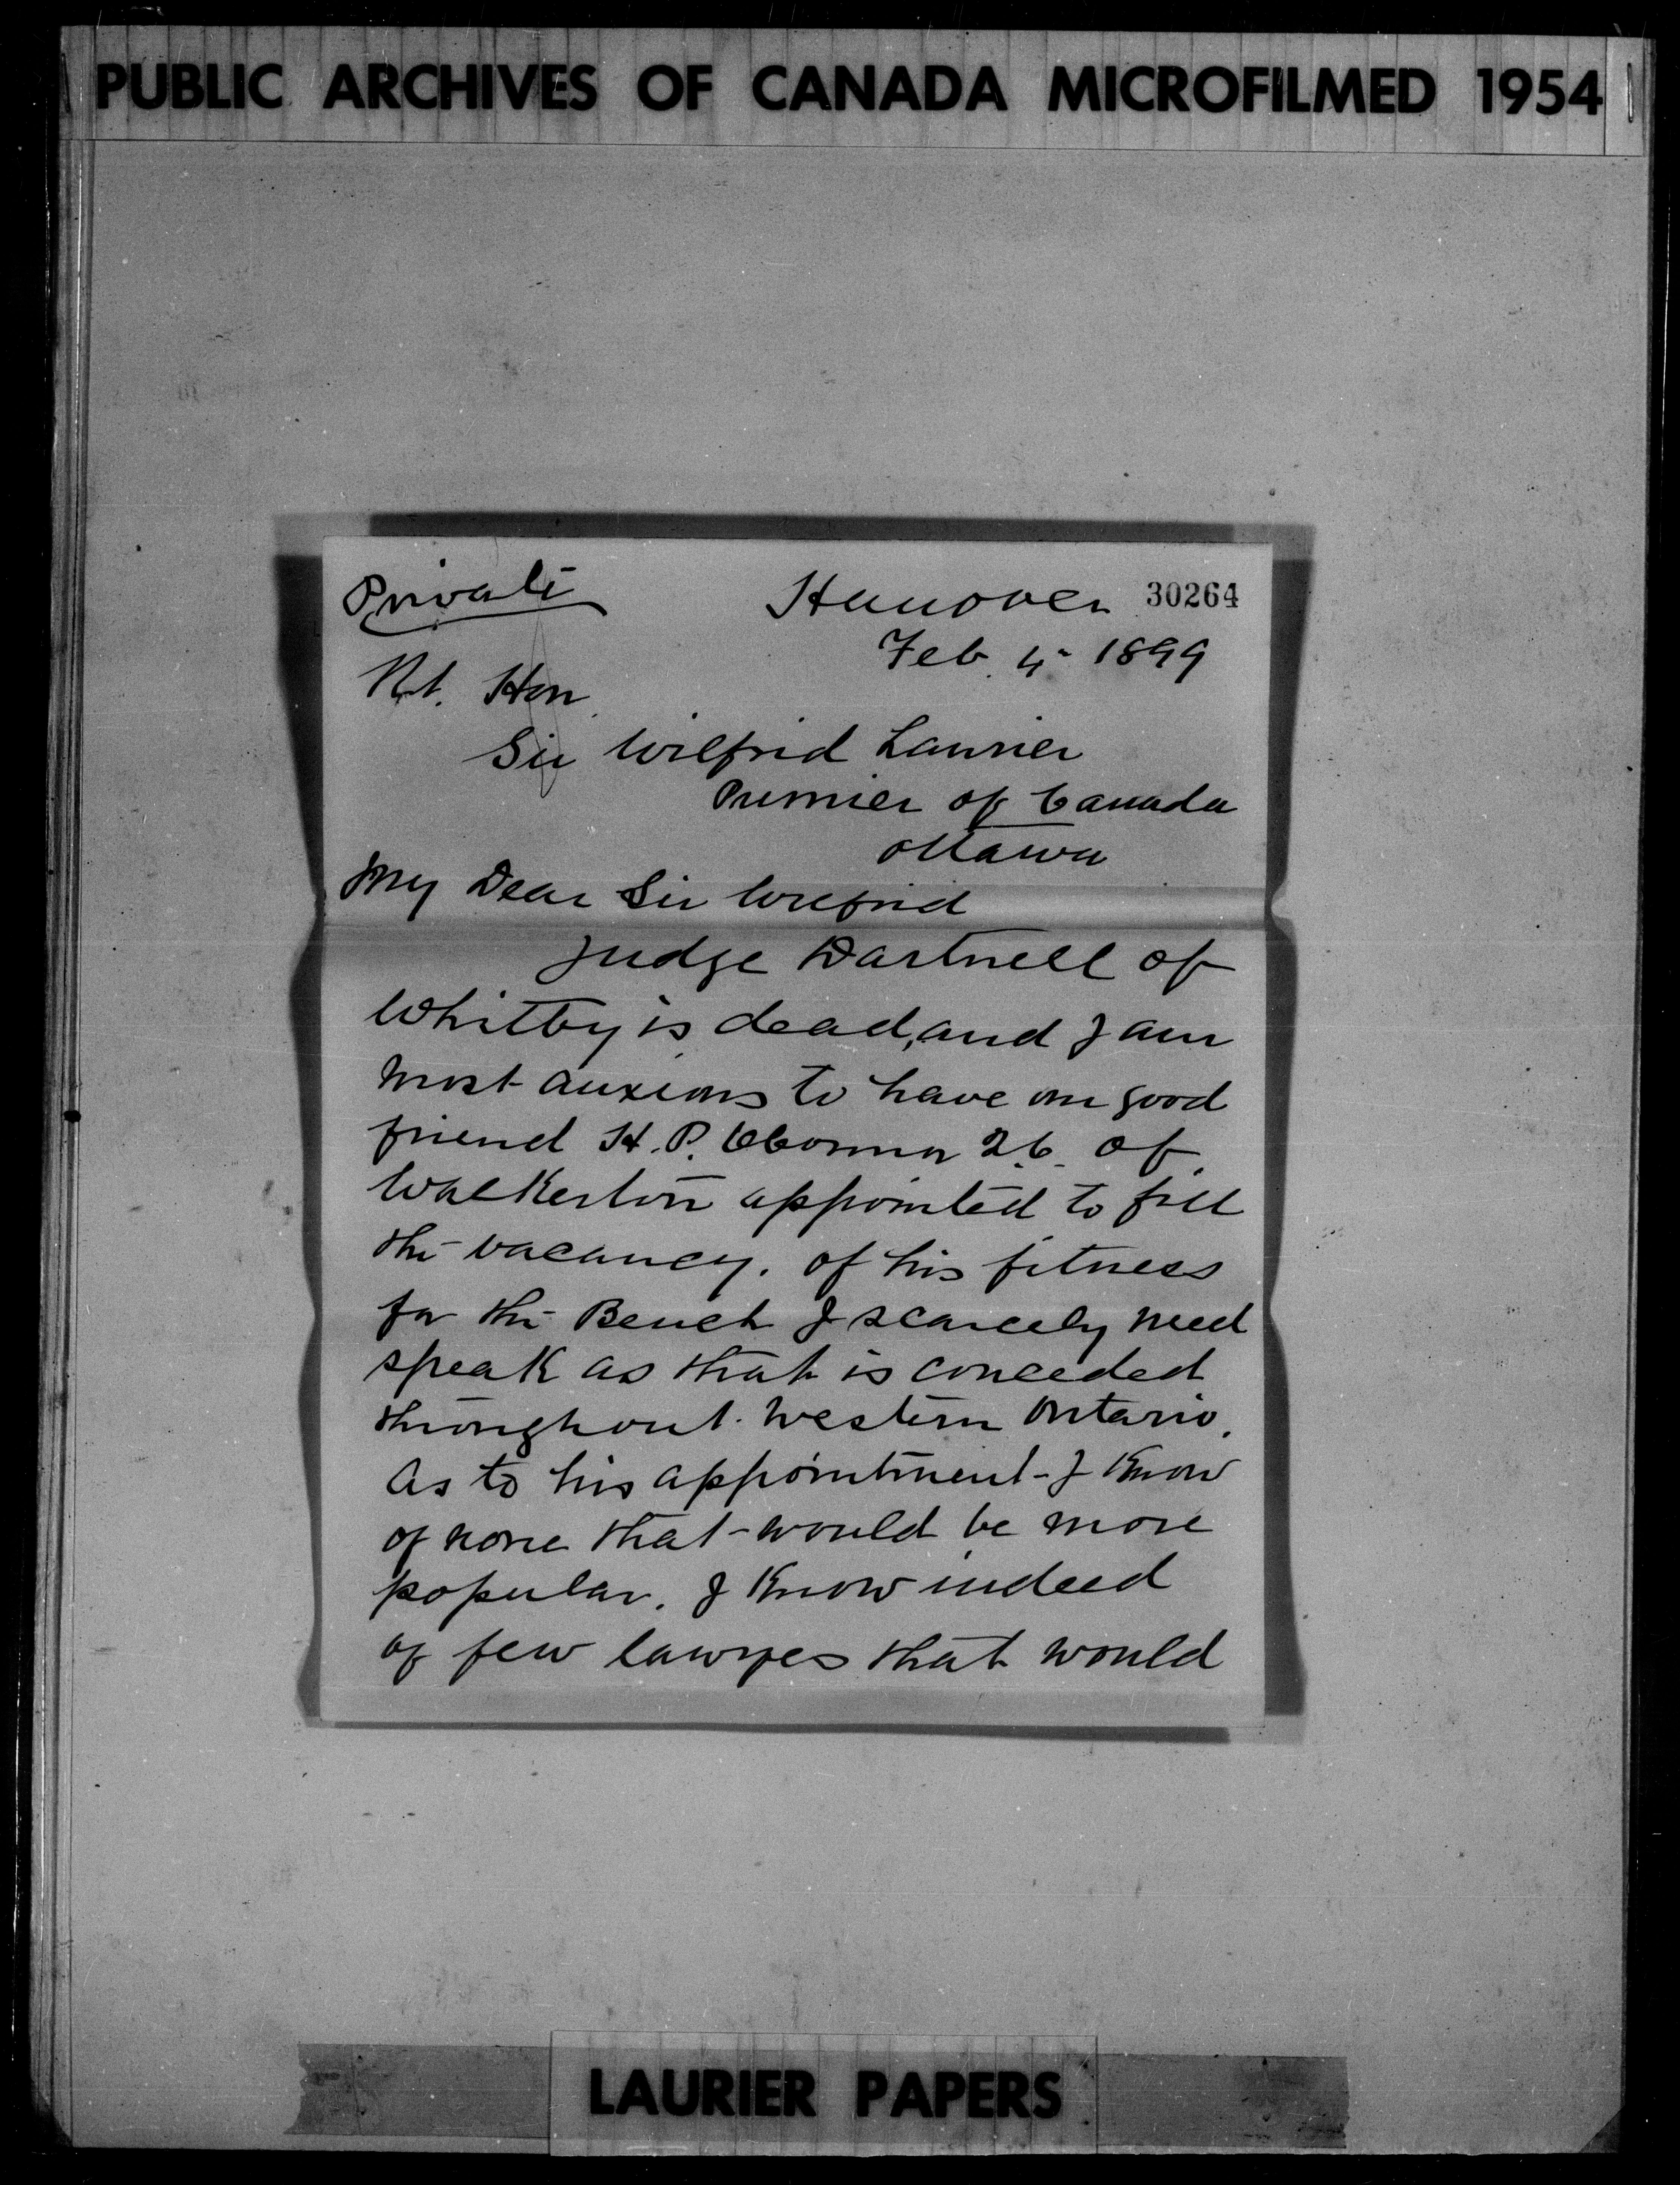 PUBLIC ARCHIVES OF CANADA MICROFILMED 1954
Private
Hanover 30264
Feb. 4 1899
Rt. Hon
Sir Wilfrid Laurier
Premier of Canada
Ottawa
My Dear Sir Wilfrid
Judge Dartnell of
Whitby is dead, and I am
most anxious to have our good
friend H. P. O'Connor Q.C. of
Walkerton appointed to fill
the vacancy. of his fitness
for the Bench I scarcely need
speak as that is conceded
throughout Western Ontario.
As to his appointment I know
of none that would be more
popular. I know indeed
of few lawyes that would
LAURIER PAPERS